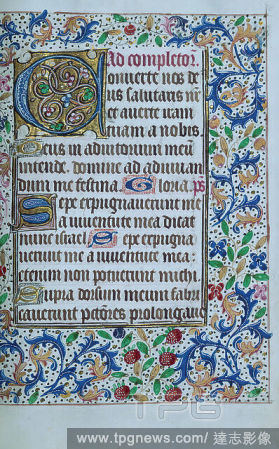 Ad completor.
Conuerte nos de
us salutaris nr
et auerte iram
tuam a nobis.
Deus in adiutorium meu
intende. domine ad adiuuan
dum me festina Gloria. ps
Sepe expugnauerunt me
a iuuentute mea dicat
nunc israel. Sepe expugna
uerunt me a iuuentute mea:
etenim non potuerunt michi
Supra dorsum meum fabri
cauerunt pctores prolongaue
TPG
www.tpgnews.com/ 達志影像